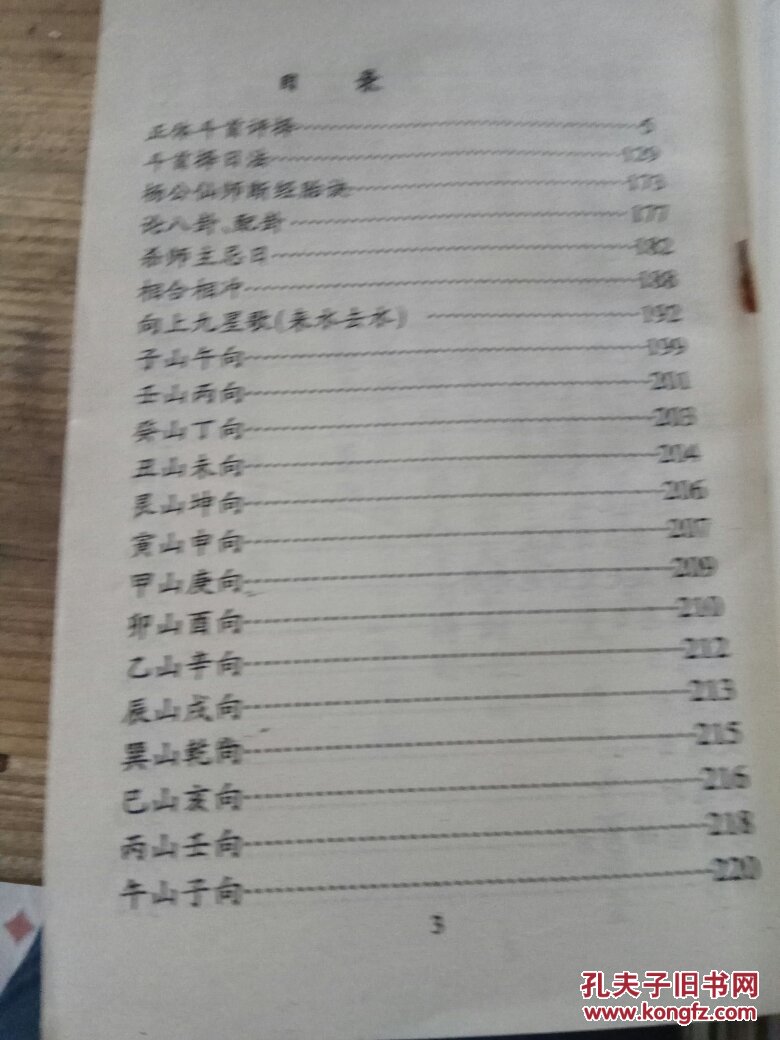 目 录
正体斗首评择 5
斗首择日法 129
杨公仙师断经胎诀 173
论八卦、配卦 177
杀师主忌日 182
相合相冲 188
向上九星歌(来水去水) 192
子山午向 199
壬山丙向 201
癸山丁向 203
丑山未向 204
艮山坤向 206
寅山申向 207
甲山庚向 209
卯山酉向 210
乙山辛向 212
辰山戌向 213
巽山乾向 215
巳山亥向 216
丙山壬向 218
午山子向 220
3
孔夫子旧书网
www.kongfz.com